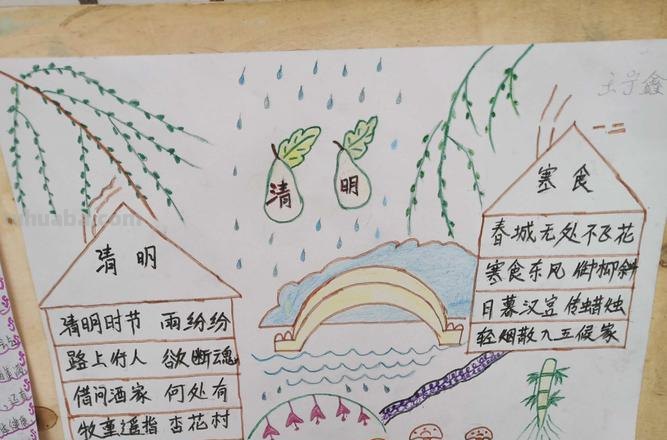 清 明
清明
清明时节 雨纷纷
路上行人 欲断魂
借问酒家 何处有
牧童遥指 杏花村
寒食
春城无处不飞花
寒食东风御柳斜
日暮汉宫传蜡烛
轻烟散入五候家